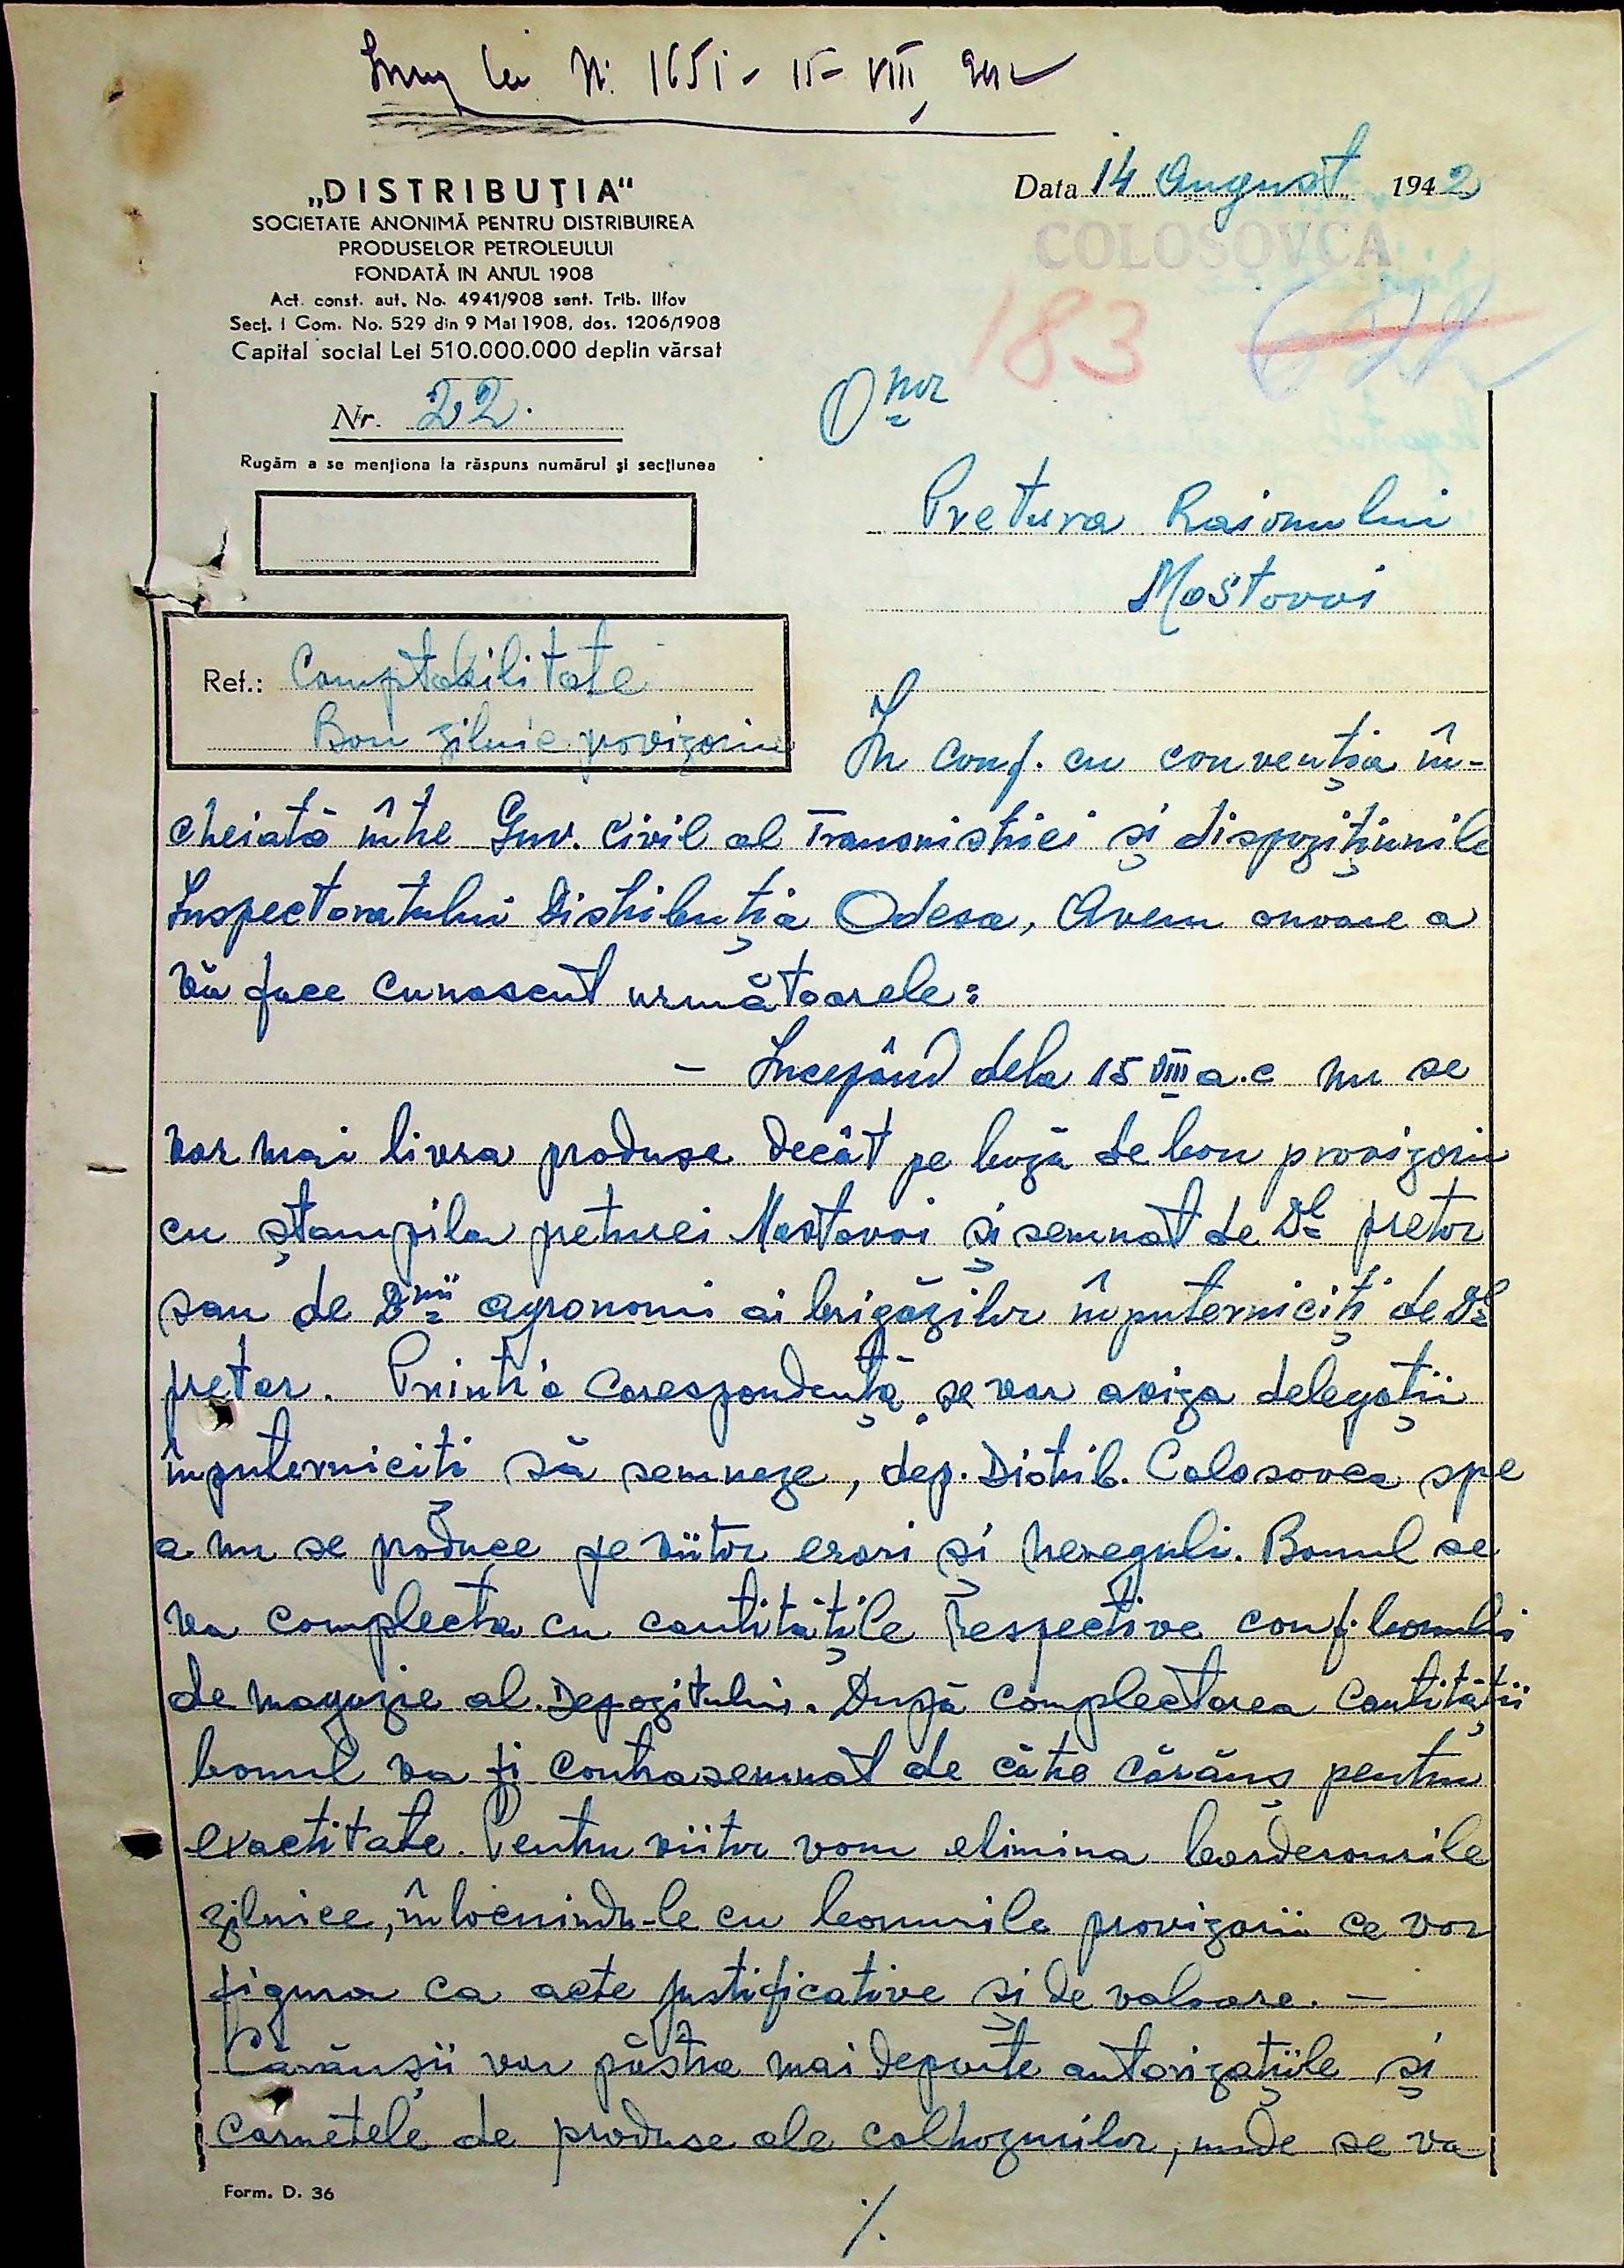 Inreg la N: 1651 - 15 - VIII, 942
„DISTRIBUŢIA“
SOCIETATE ANONIMĂ PENTRU DISTRIBUIREA
PRODUSELOR PETROLEULUI
FONDATĂ IN ANUL 1908
Act. const. aut. No. 4941/908 sent. Trib. Ilfov
Secţ. I Com. No. 529 din 9 Mai 1908, dos. 1206/1908
Capital social Lei 510.000.000 deplin vărsat
Nr. 22.
Rugăm a se menţiona la răspuns numărul şi secţiunea
Data 14 August 1942
COLOSOVCA
183
Onor
Pretura Raionului
Mostovoi
Ref.: Comptabilitate
Bon zilnic provizoriu
In conf. cu convenția în-
cheiată între Guv. Civil al Transnistriei și dispozițiunile
Inspectoratului Distribuția Odesa, Avem onoare a
Vă face cunoscut următoarele:
- Începând dela 15 VIII a.c nu se
vor mai livra produse decât pe bază de bon provizoriu
cu ștampila preturei Mostovoi și semnat de Dl pretor
sau de Dnii agronomi ai brigăzilor împuterniciți de Dl
pretor. Printr'o Corespondență se vor aviza delegații
împuterniciti să semneze, dep. Distrib. Colosovca spe
a nu se produce pe viitor erori și nereguli. Bonul se
va complecta cu cantitățile respective conf. bonului
de magazie al Depozitului. După complectarea Cantității
bonul va fi contrasemnat de către cărăuș pentru
exactitate. Pentru viitor vom elimina borderourile
zilnice, înlocuindu-le cu bonurile provizorii ce vor
figura ca acte justificative și de valoare. -
Cărăușii vor păstra mai departe autorizațiile și
Carnetele de produse ale colhozurilor, unde se va
Form. D. 36
./.